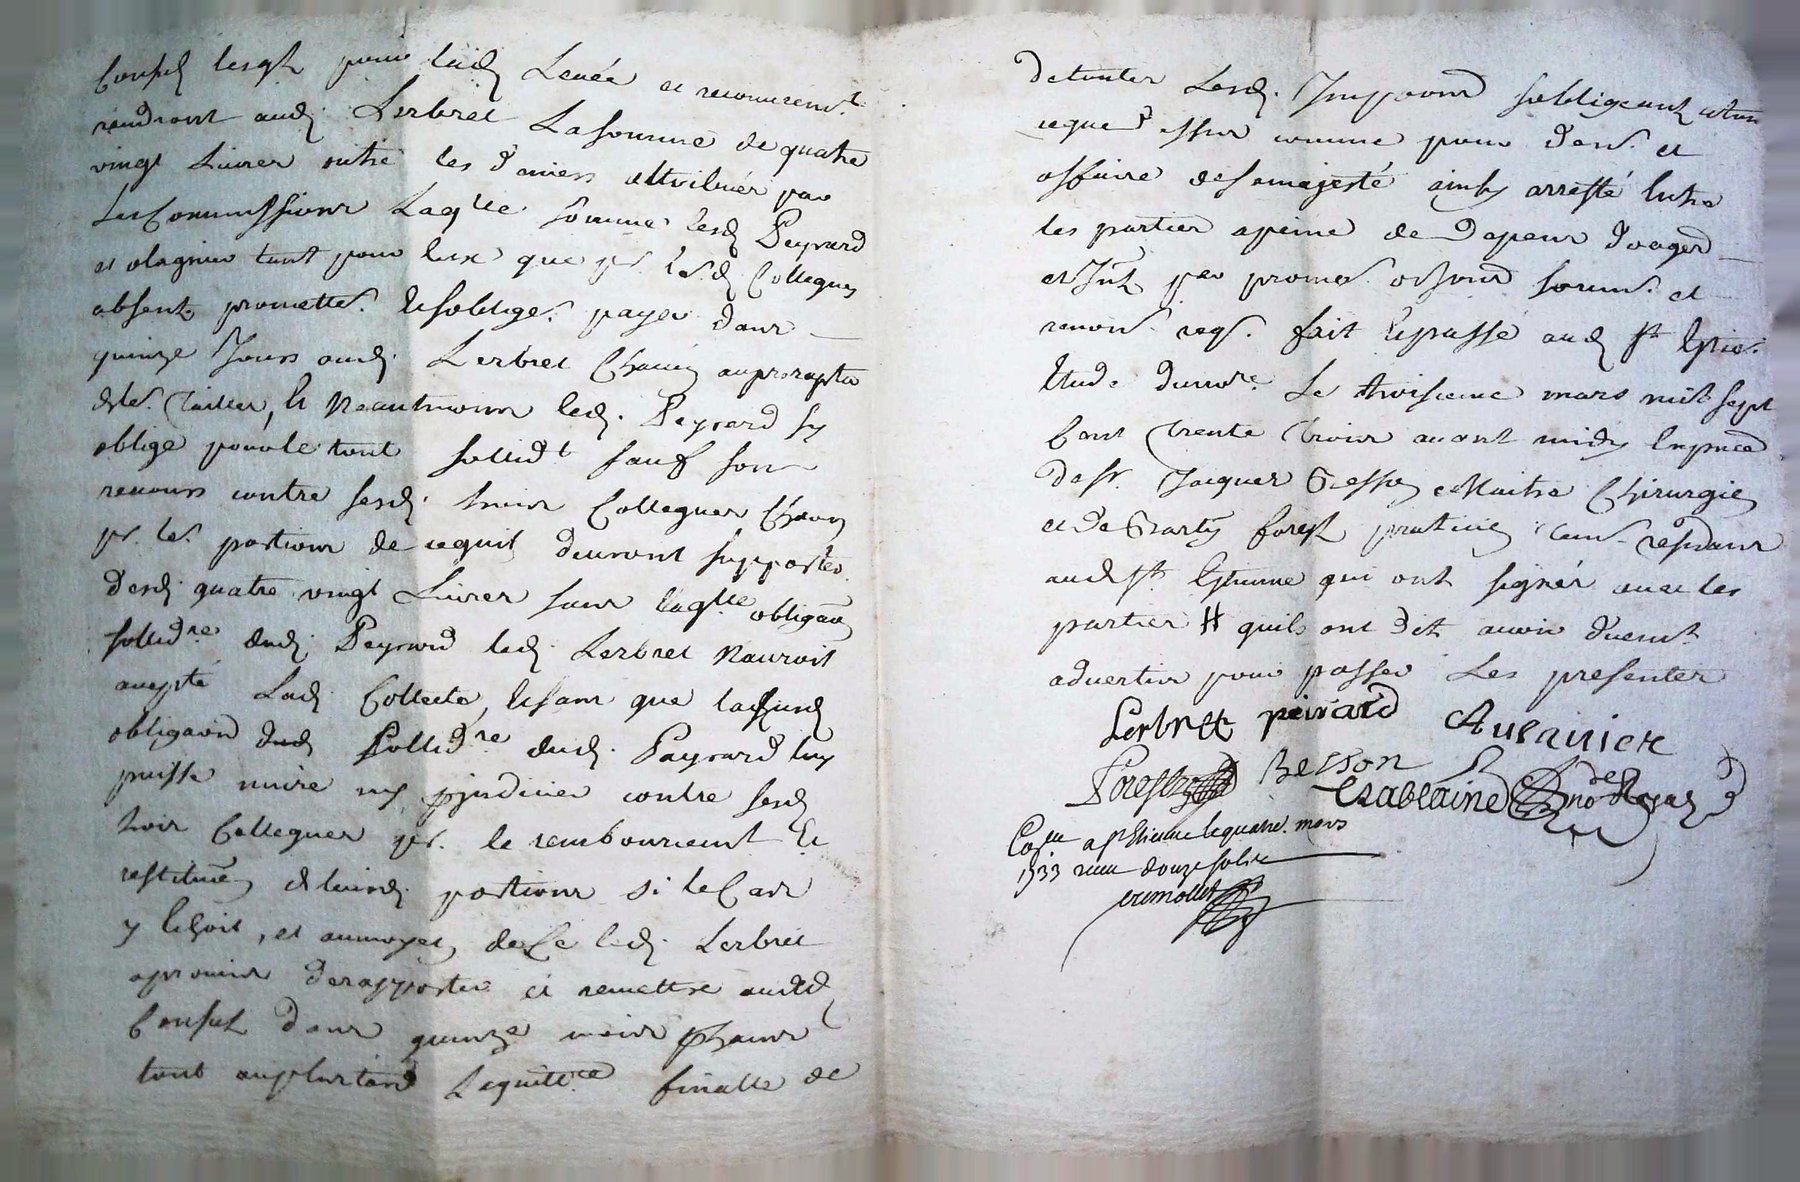 Consulz lesqlz pour ladt Levée et recouvremt
rendront audt Lerbret La somme de quatre
vingt Livres outre les deniers attribués par
Les Commissions Laqlle somme lesd Peyrard
et olagnier tant pour eux que pr Lesd Collegues
absents promettet Et sobliget payer dans
quinze Jours audt Lerbret Chacun au prorapta
des tailles, Et Neantmoins led. Peyrard sy
oblige pour le tout sollidt sauf son
recours contre sesd. trois Collegues Chacun
pr les portions de ce quil devront supporter
desd quatre vingt Livres sans laqlle obligaon
sollidre dudt Peyrard led. Lerbret Nauroit
accepté Lad Collecte, Et sans que lad
obligaon sollidre dudt. Peyrard luy
puisse nuire ny prejudicier contre sesd
trois Collegues pr. le remboursement Et
restituon desd portions si le Cas
y Echoit, et aumoyen de Ce led. Lerbret
a promis de rapporter et remettre ausd
Consulz dans quinze mois prochains
tout au plus tard La quittce finalle de
de toutes Lesd. Impoons sobligeant
ce que dessus comme pour den. et
affaire de sa majesté ainsy arresté Entre
les parties a peine de Depens domages
et Intz par promes. obligaons soumis. et
renons reqs. fait Et passé aud St Etiene
Etude du nore Le troisieme mars mil sept
Cent trente trois avant midy En presence
de Sr Jacques Besson Maitre Chirurgien
et de forest praticien residans
aud St Etienne qui ont signés avec les
parties # quils ont dit avoir duemt
advertir pour passer Les presentes
Lerbrett peirard Aulanier
Forest Besson
Chablaine no Royal
Colé a St Etienne le quatre mars
1733 recu douze sols
cremollet